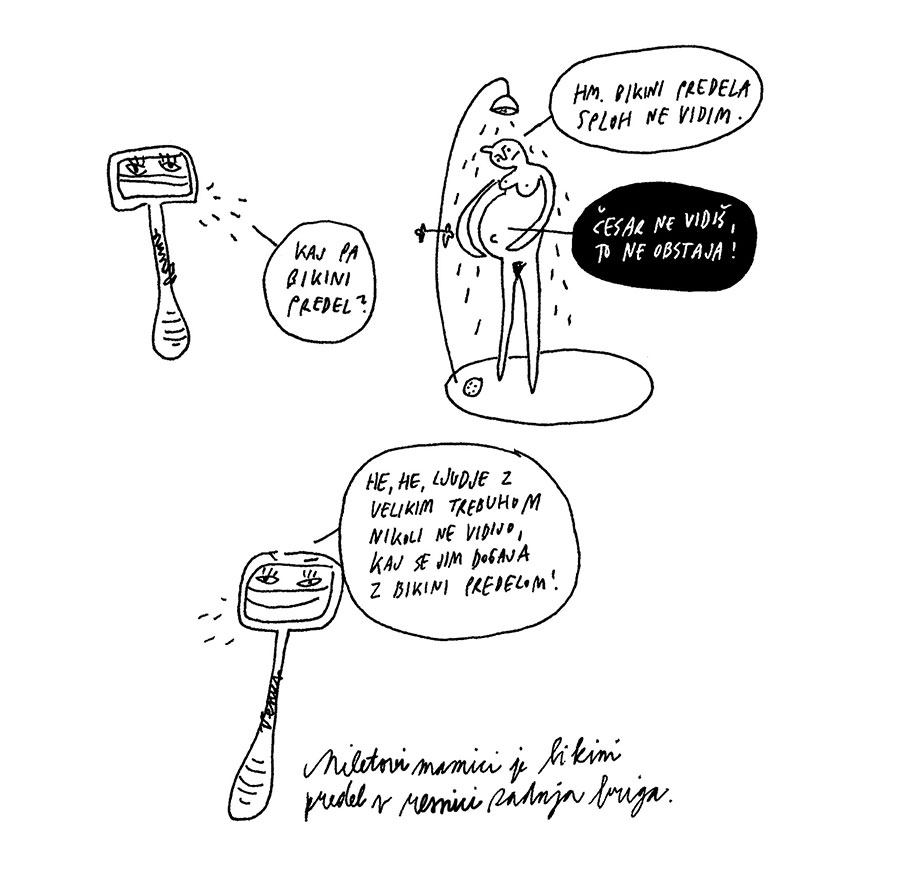 KAJ PA
BIKINI
PREDEL?
HM. BIKINI PREDELA
SPLOH NE VIDIM.
ČESAR NE VIDIŠ,
TO NE OBSTAJA!
HE, HE, LJUDJE Z
VELIKIM TREBUHOM
NIKOLI NE VIDIJO,
KAJ SE JIM DOGAJA
Z BIKINI PREDELOM!
Venus
Miletovi mamici je bikini
predel v resnici zadnja briga.